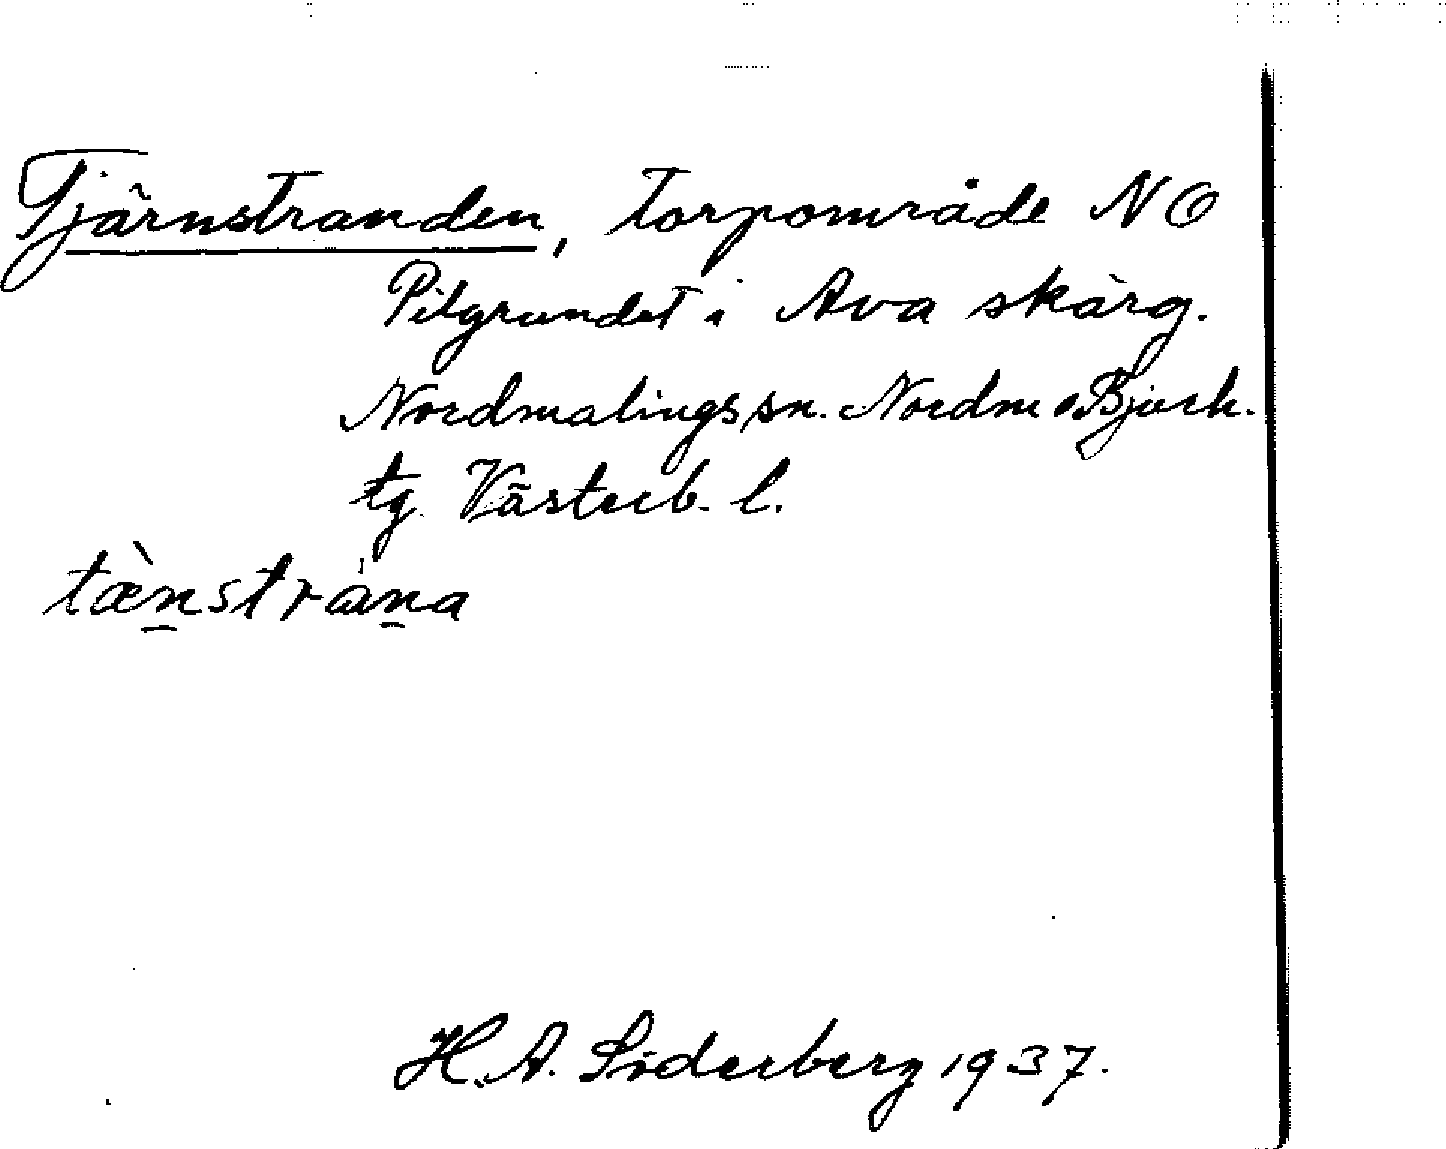 Tjärnstranden, torpområde NO
Pilgrundet i Ava skärg.
Nordmalings sn. Nordm o Bjurh.
tg. Västerb. l.
tæ̀nstràna
H. A. Söderberg 1937.